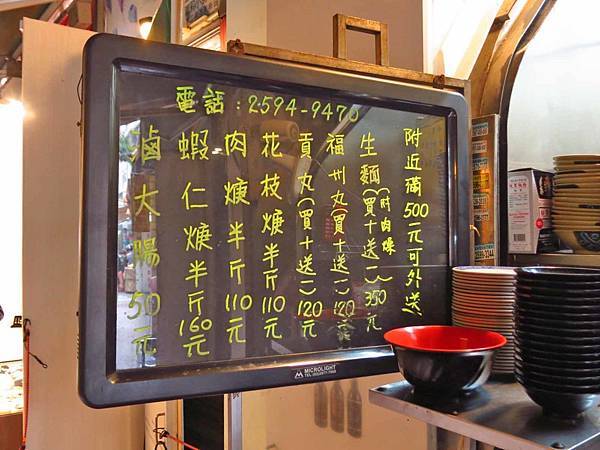 電話:2594-9470
附近滿500元可外送
生麵(買十送一)350元
(附肉燥)
福州丸(買十送一)120元
貢丸(買十送一)120元
花枝焿半斤110元
肉焿半斤110元
蝦仁焿半斤160元
滷大腸50元
MICROLIGHT